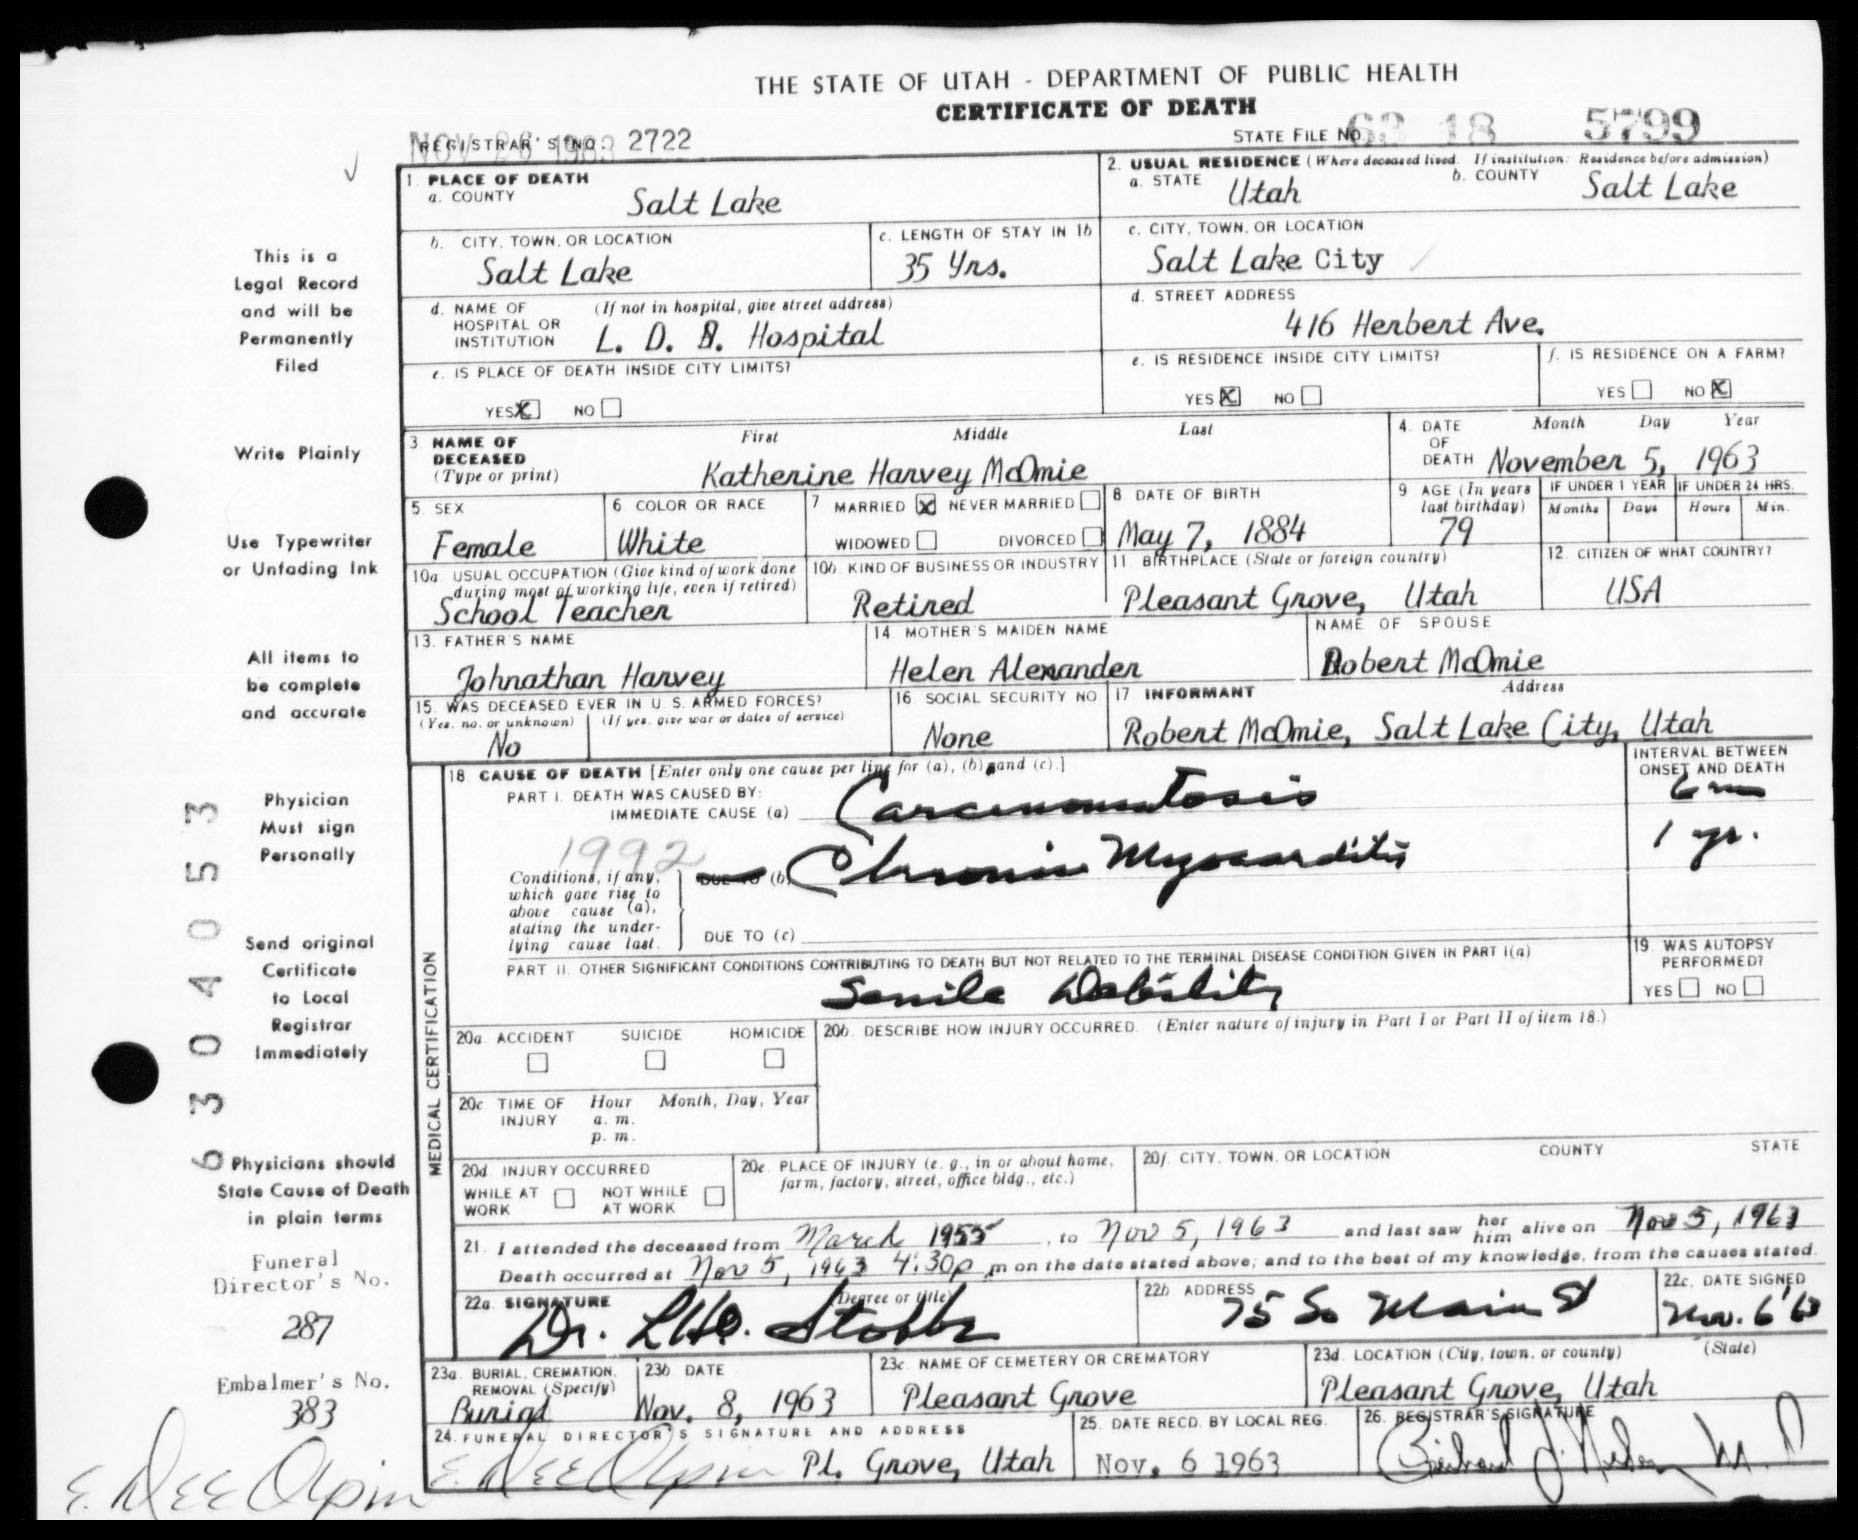 THE STATE OF UTAH - DEPARTMENT OF PUBLIC HEALTH
CERTIFICATE OF DEATH
NOV 26 1963
REGISTRAR'S NO. 2722
STATE FILE NO. 63 18 5799
1. PLACE OF DEATH
a. COUNTY Salt Lake
2. USUAL RESIDENCE (Where deceased lived. If institution: Residence before admission)
a. STATE Utah b. COUNTY Salt Lake
b. CITY, TOWN, OR LOCATION Salt Lake
c. LENGTH OF STAY IN 1b 35 Yrs.
c. CITY, TOWN, OR LOCATION Salt Lake City
d. NAME OF HOSPITAL OR INSTITUTION (If not in hospital, give street address) L. D. S. Hospital
d. STREET ADDRESS 416 Herbert Ave.
e. IS PLACE OF DEATH INSIDE CITY LIMITS?
YES X NO
e. IS RESIDENCE INSIDE CITY LIMITS?
YES X NO
f. IS RESIDENCE ON A FARM?
YES NO X
3 NAME OF DECEASED (Type or print) First Middle Last
Katherine Harvey McOmie
4. DATE OF DEATH Month Day Year
November 5, 1963
5 SEX Female
6 COLOR OR RACE White
7 MARRIED X NEVER MARRIED
WIDOWED DIVORCED
8 DATE OF BIRTH May 7, 1884
9 AGE (In years last birthday) 79
IF UNDER 1 YEAR Months Days
IF UNDER 24 HRS. Hours Min.
10a. USUAL OCCUPATION (Give kind of work done during most of working life, even if retired)
School Teacher
10b. KIND OF BUSINESS OR INDUSTRY Retired
11 BIRTHPLACE (State or foreign country) Pleasant Grove, Utah
12. CITIZEN OF WHAT COUNTRY? USA
13. FATHER'S NAME Johnathan Harvey
14 MOTHER'S MAIDEN NAME Helen Alexander
NAME OF SPOUSE Robert McOmie
15. WAS DECEASED EVER IN U. S. ARMED FORCES?
(Yes, no, or unknown) (If yes, give war or dates of service)
No
16 SOCIAL SECURITY NO. None
17 INFORMANT Address
Robert McOmie, Salt Lake City, Utah
MEDICAL CERTIFICATION
18 CAUSE OF DEATH [Enter only one cause per line for (a), (b) and (c).]
INTERVAL BETWEEN ONSET AND DEATH
PART I. DEATH WAS CAUSED BY:
IMMEDIATE CAUSE (a) Carcinomatosis 6 m
1992
Conditions, if any, which gave rise to above cause (a), stating the underlying cause last.
DUE TO (b) Chronic Myocarditis 1 yr.
DUE TO (c)
PART II. OTHER SIGNIFICANT CONDITIONS CONTRIBUTING TO DEATH BUT NOT RELATED TO THE TERMINAL DISEASE CONDITION GIVEN IN PART I(a)
Senile Debility
19. WAS AUTOPSY PERFORMED?
YES NO
20a. ACCIDENT SUICIDE HOMICIDE
20b. DESCRIBE HOW INJURY OCCURRED. (Enter nature of injury in Part I or Part II of item 18.)
20c. TIME OF INJURY Hour Month, Day, Year
a. m.
p. m.
20d. INJURY OCCURRED
WHILE AT WORK NOT WHILE AT WORK
20e. PLACE OF INJURY (e. g., in or about home, farm, factory, street, office bldg., etc.)
20f. CITY, TOWN, OR LOCATION COUNTY STATE
21. I attended the deceased from March 1955, to Nov 5, 1963 and last saw her him alive on Nov 5, 1963
Death occurred at Nov 5, 1963 4:30p m on the date stated above; and to the best of my knowledge, from the causes stated.
22a. SIGNATURE (Degree or title)
Dr. Stobbe
22b. ADDRESS 75 So Main St
22c. DATE SIGNED Nov. 6 '63
23a. BURIAL, CREMATION, REMOVAL (Specify) Burial
23b DATE Nov. 8, 1963
23c. NAME OF CEMETERY OR CREMATORY Pleasant Grove
23d. LOCATION (City, town, or county) (State)
Pleasant Grove, Utah
24. FUNERAL DIRECTOR'S SIGNATURE AND ADDRESS
E. Dee Olpin Pl. Grove, Utah
25. DATE RECD. BY LOCAL REG. Nov. 6 1963
26. REGISTRAR'S SIGNATURE
M D
This is a
Legal Record
and will be
Permanently
Filed
Write Plainly
Use Typewriter
or Unfading Ink
All items to
be complete
and accurate
Physician
Must sign
Personally
Send original
Certificate
to Local
Registrar
Immediately
Physicians should
State Cause of Death
in plain terms
6304053
Funeral
Director's No.
287
Embalmer's No.
383
E. Dee Olpin